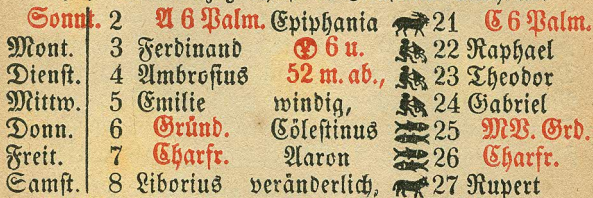 Sonnt. 2 A 6 Palm. Epiphania 21 C 6 Palm.
Mont. 3 Ferdinand 6 u. 22 Raphael
Dienst. 4 Ambrosius 52 m. ab., 23 Theodor
Mittw. 5 Emilie windig, 24 Gabriel
Donn. 6 Gründ. Cölestinus 25 MV. Grd.
Freit. 7 Charfr. Aaron 26 Charfr.
Samst. 8 Liborius veränderlich, 27 Rupert